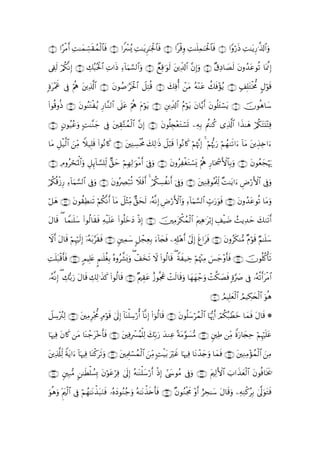 وَٱلذَّٰرِيَٰتِ ذَرْوًا ۝ فَٱلْحَٰمِلَٰتِ وِقْرًا ۝ فَٱلْجَٰرِيَٰتِ يُسْرًا ۝ فَٱلْمُقَسِّمَٰتِ أَمْرًا ۝
إِنَّمَا تُوعَدُونَ لَصَادِقٌ ۝ وَإِنَّ ٱلدِّينَ لَوَٰقِعٌ ۝ وَٱلسَّمَآءِ ذَاتِ ٱلْحُبُكِ ۝ إِنَّكُمْ لَفِى
قَوْلٍ مُّخْتَلِفٍ ۝ يُؤْفَكُ عَنْهُ مَنْ أُفِكَ ۝ قُتِلَ ٱلْخَرَّٰصُونَ ۝ ٱلَّذِينَ هُمْ فِى غَمْرَةٍ
سَاهُونَ ۝ يَسْـَٔلُونَ أَيَّانَ يَوْمُ ٱلدِّينِ ۝ يَوْمَ هُمْ عَلَى ٱلنَّارِ يُفْتَنُونَ ۝ ذُوقُوا۟
فِتْنَتَكُمْ هَٰذَا ٱلَّذِى كُنتُم بِهِۦ تَسْتَعْجِلُونَ ۝ إِنَّ ٱلْمُتَّقِينَ فِى جَنَّٰتٍ وَعُيُونٍ ۝
ءَاخِذِينَ مَآ ءَاتَىٰهُمْ رَبُّهُمْ إِنَّهُمْ كَانُوا۟ قَبْلَ ذَٰلِكَ مُحْسِنِينَ ۝ كَانُوا۟ قَلِيلًا مِّنَ ٱلَّيْلِ مَا
يَهْجَعُونَ ۝ وَبِٱلْأَسْحَارِ هُمْ يَسْتَغْفِرُونَ ۝ وَفِىٓ أَمْوَٰلِهِمْ حَقٌّ لِّلسَّآئِلِ وَٱلْمَحْرُومِ ۝
وَفِى ٱلْأَرْضِ ءَايَٰتٌ لِّلْمُوقِنِينَ ۝ وَفِىٓ أَنفُسِكُمْ أَفَلَا تُبْصِرُونَ ۝ وَفِى ٱلسَّمَآءِ رِزْقُكُمْ
وَمَا تُوعَدُونَ ۝ فَوَرَبِّ ٱلسَّمَآءِ وَٱلْأَرْضِ إِنَّهُۥ لَحَقٌّ مِّثْلَ مَآ أَنَّكُمْ تَنطِقُونَ ۝ هَلْ
أَتَىٰكَ حَدِيثُ ضَيْفِ إِبْرَٰهِيمَ ٱلْمُكْرَمِينَ ۝ إِذْ دَخَلُوا۟ عَلَيْهِ فَقَالُوا۟ سَلَٰمًا قَالَ
سَلَٰمٌ قَوْمٌ مُّنكَرُونَ ۝ فَرَاغَ إِلَىٰٓ أَهْلِهِۦ فَجَآءَ بِعِجْلٍ سَمِينٍ ۝ فَقَرَّبَهُۥٓ إِلَيْهِمْ قَالَ أَلَا
تَأْكُلُونَ ۝ فَأَوْجَسَ مِنْهُمْ خِيفَةً قَالُوا۟ لَا تَخَفْ وَبَشَّرُوهُ بِغُلَٰمٍ عَلِيمٍ ۝ فَأَقْبَلَتِ
ٱمْرَأَتُهُۥ فِى صَرَّةٍ فَصَكَّتْ وَجْهَهَا وَقَالَتْ عَجُوزٌ عَقِيمٌ ۝ قَالُوا۟ كَذَٰلِكِ قَالَ رَبُّكِ إِنَّهُۥ
هُوَ ٱلْحَكِيمُ ٱلْعَلِيمُ ۝
۞ قَالَ فَمَا خَطْبُكُمْ أَيُّهَا ٱلْمُرْسَلُونَ ۝ قَالُوٓا۟ إِنَّآ أُرْسِلْنَآ إِلَىٰ قَوْمٍ مُّجْرِمِينَ ۝ لِنُرْسِلَ
عَلَيْهِمْ حِجَارَةً مِّن طِينٍ ۝ مُّسَوَّمَةً عِندَ رَبِّكَ لِلْمُسْرِفِينَ ۝ فَأَخْرَجْنَا مَن كَانَ فِيهَا
مِنَ ٱلْمُؤْمِنِينَ ۝ فَمَا وَجَدْنَا فِيهَا غَيْرَ بَيْتٍ مِّنَ ٱلْمُسْلِمِينَ ۝ وَتَرَكْنَا فِيهَآ ءَايَةً لِّلَّذِينَ
يَخَافُونَ ٱلْعَذَابَ ٱلْأَلِيمَ ۝ وَفِى مُوسَىٰٓ إِذْ أَرْسَلْنَٰهُ إِلَىٰ فِرْعَوْنَ بِسُلْطَٰنٍ مُّبِينٍ ۝
فَتَوَلَّىٰ بِرُكْنِهِۦ وَقَالَ سَٰحِرٌ أَوْ مَجْنُونٌ ۝ فَأَخَذْنَٰهُ وَجُنُودَهُۥ فَنَبَذْنَٰهُمْ فِى ٱلْيَمِّ وَهُوَ